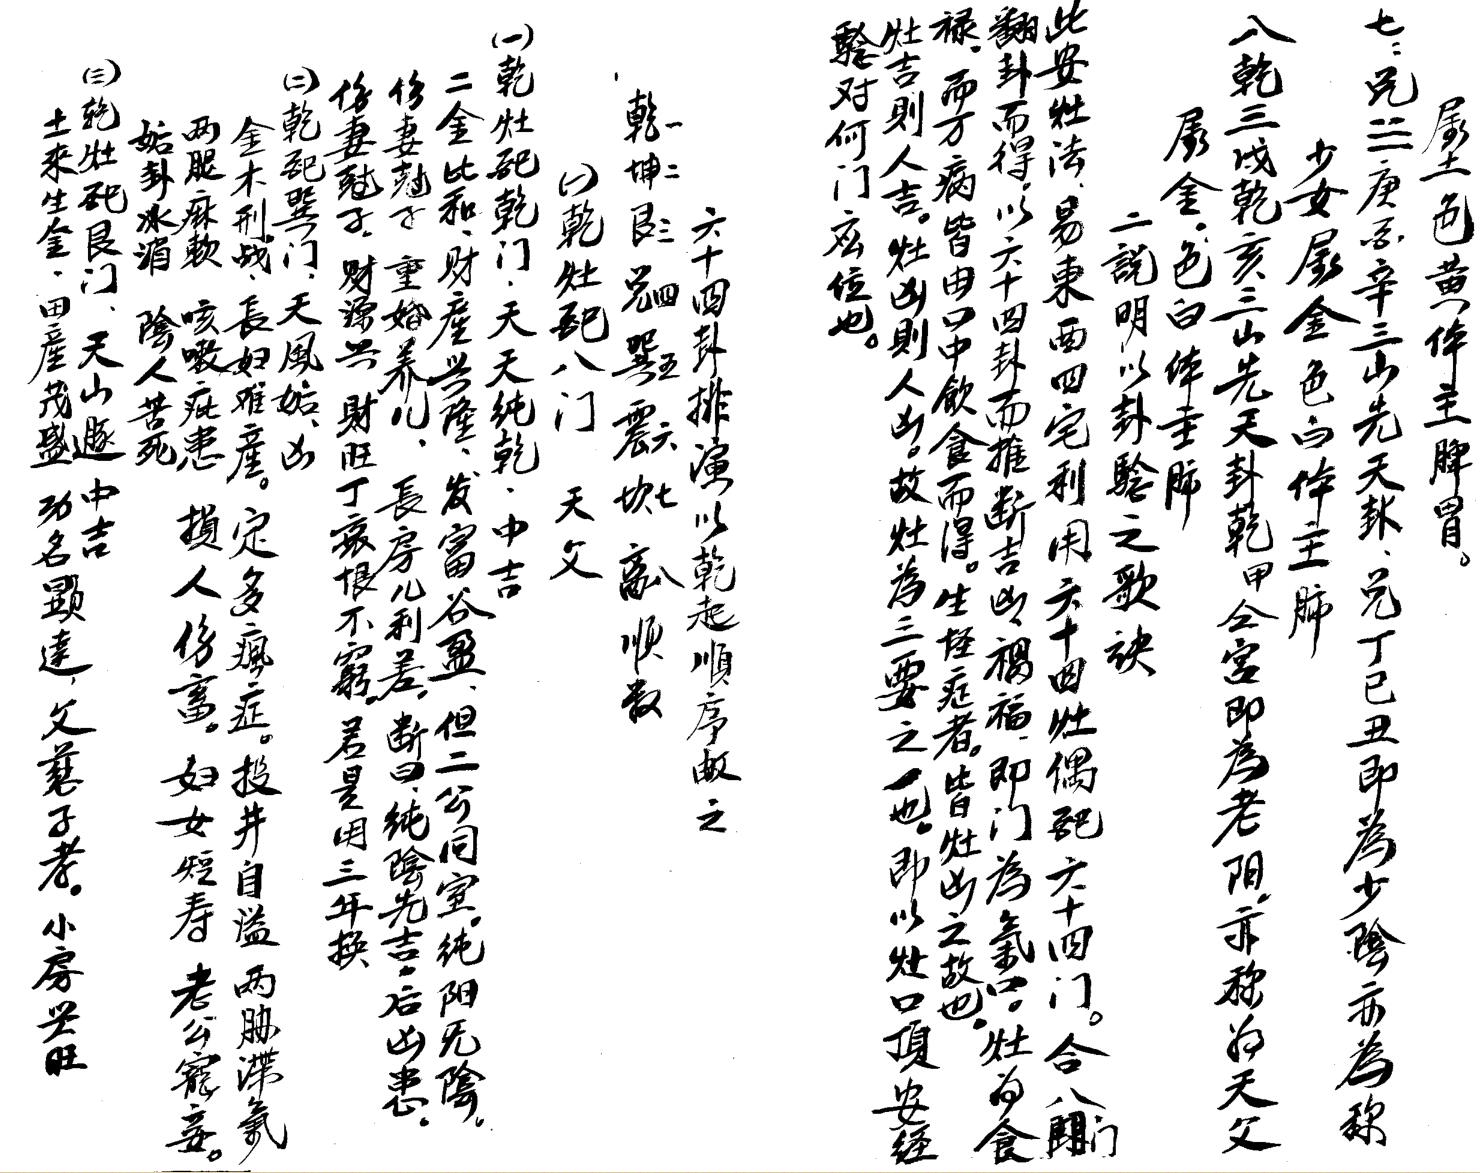 属土色黄体主脾胃。
七：兌☱庚酉辛三山先天卦、兌丁巳丑即為少陰亦為称
少女属金色白体主肺
八乾三戌乾亥三山先天卦乾甲仝宮即為老阳。亦称为天父
属金。色白体主肺
二說明以卦騐之歌诀
此安灶法、易東西四宅利用六十四灶偶配六十四门。合八門
翻卦而得。以六十四卦而推断吉凶、禍福、即门為氣口。灶为食
禄。而万病皆由口中飲食而得。生怪症者。皆灶凶之故也。
灶吉則人吉。灶凶則人凶。故灶為三要之一也。即以灶口頂安经
騐对何门宏位也。
六十四卦排演以乾起順序之
乾一坤二艮三兌四巽五震六坎七离八順数
(一)乾灶配八门 天父
(一)乾灶配乾门、天天纯乾、中吉
二金比和、财產兴隆、发富谷盈、但二公同室。纯阳无陰。
伤妻尅子 重婚养儿、長房儿利差。断曰、纯陰先吉。后凶患。
伤妻尅子。财源兴 財旺丁衰恨不窮。若是用三年换
(二)乾配巽门、天風姤、凶
金木刑战、長妇难產。定多瘋症。投井自溢 两胁滞氣
两腿麻軟 咳嗽疵患 損人伤畜。妇女短寿 老公寵妾。
姤卦冰消 陰人苦死
(三)乾灶配艮门、天山遯 中吉
土来生金、田產茂盛 功名顯達、父慈子孝。小房兴旺